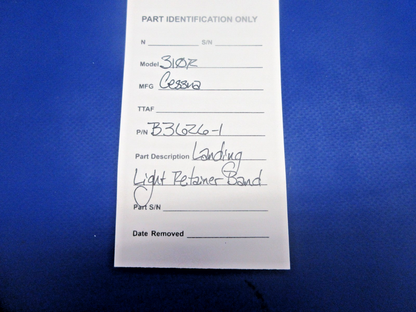 PART IDENTIFICATION ONLY
N ____________ S/N ____________
Model 310R
MFG Cessna
TTAF
P/N B3626-1
Part Description Landing
Light Retainer Band
Part S/N
Date Removed